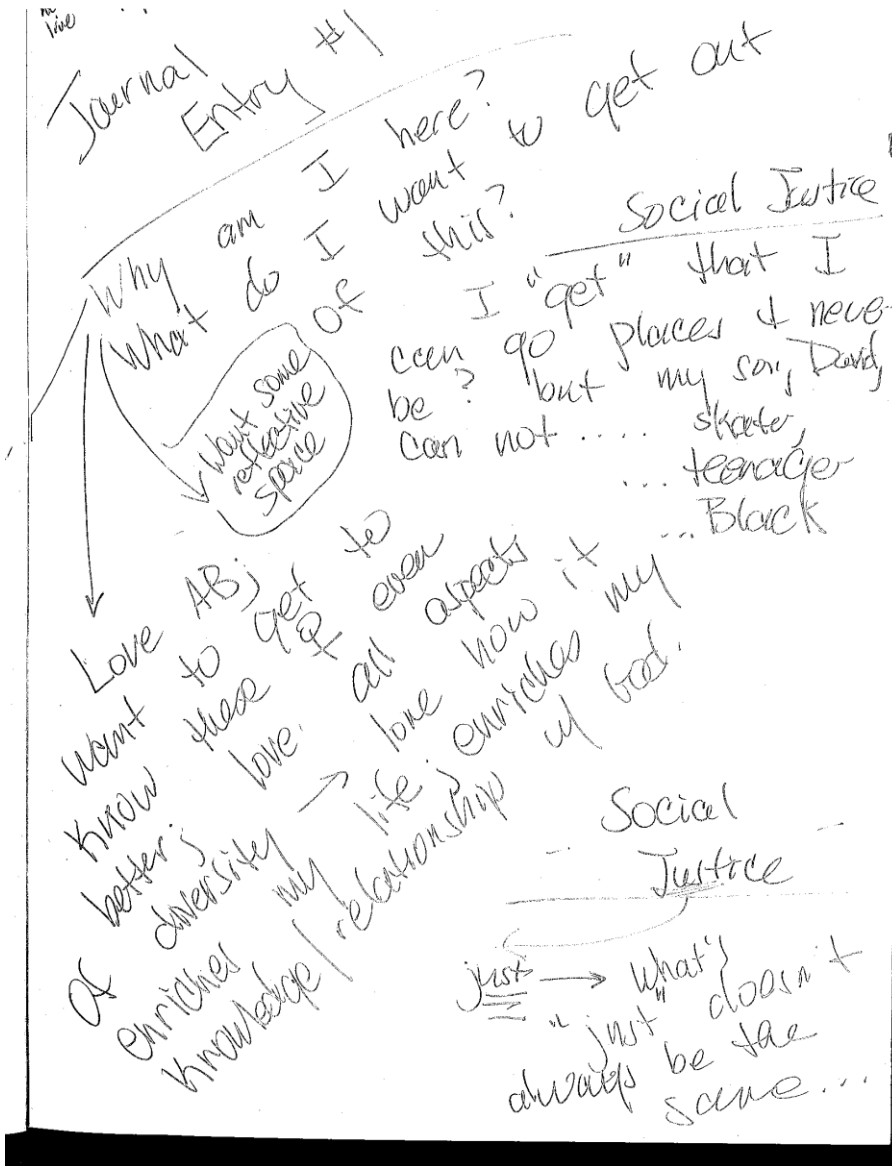 live
Journal
Entry #1
Why am I here?
What do I want to get out
of this?
want some
reflective
space
Social Justice
I "get" that I
can go places & neve
be ? but my son, David,
can not .... skater,
... teenager
... Black
Love AB;
want to get to
know these & even
better; love all aspects
of diversity → love how it
enriches my life; enriches my
knowledge/relationship w/ God.
Social
Justice
just → what's
"just" doesn't
always be the
same...